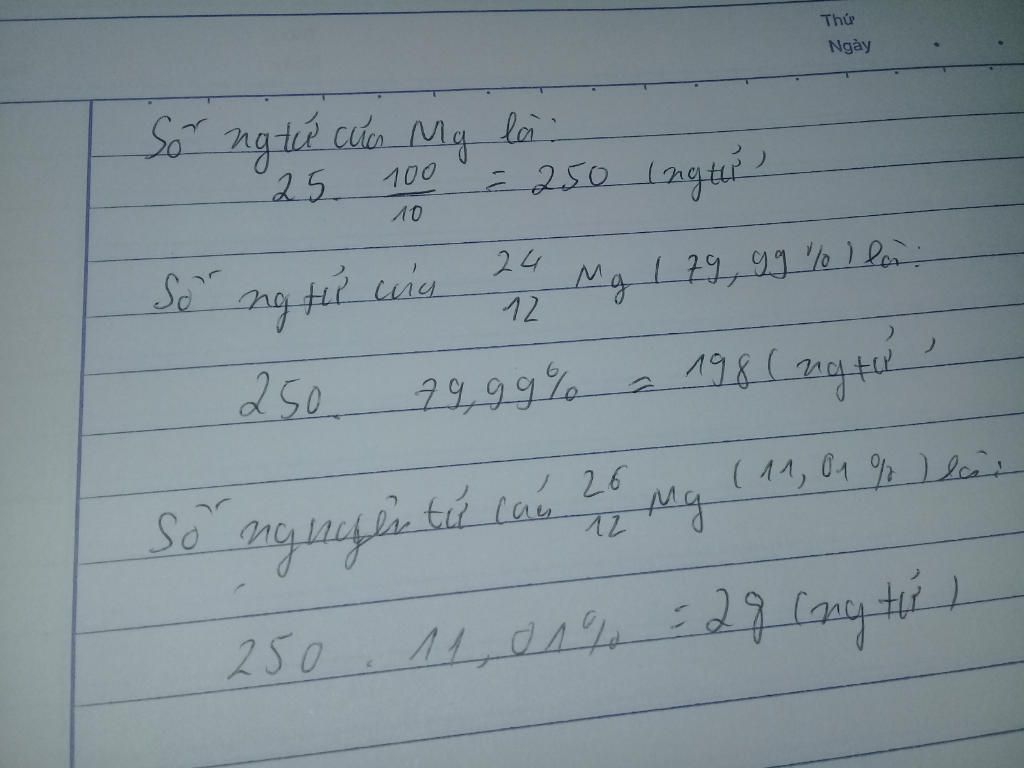 Thứ
Ngày
Số ng tử của Mg là:
25. 100/10 = 250 (ng tử)
Số ng tử của 24/12 Mg (79,99%) là:
250. 79,99% = 198 (ng tử)
Số nguyên tử của 26/12 Mg (11,01%) là:
250. 11,01% = 28 (ng tử)